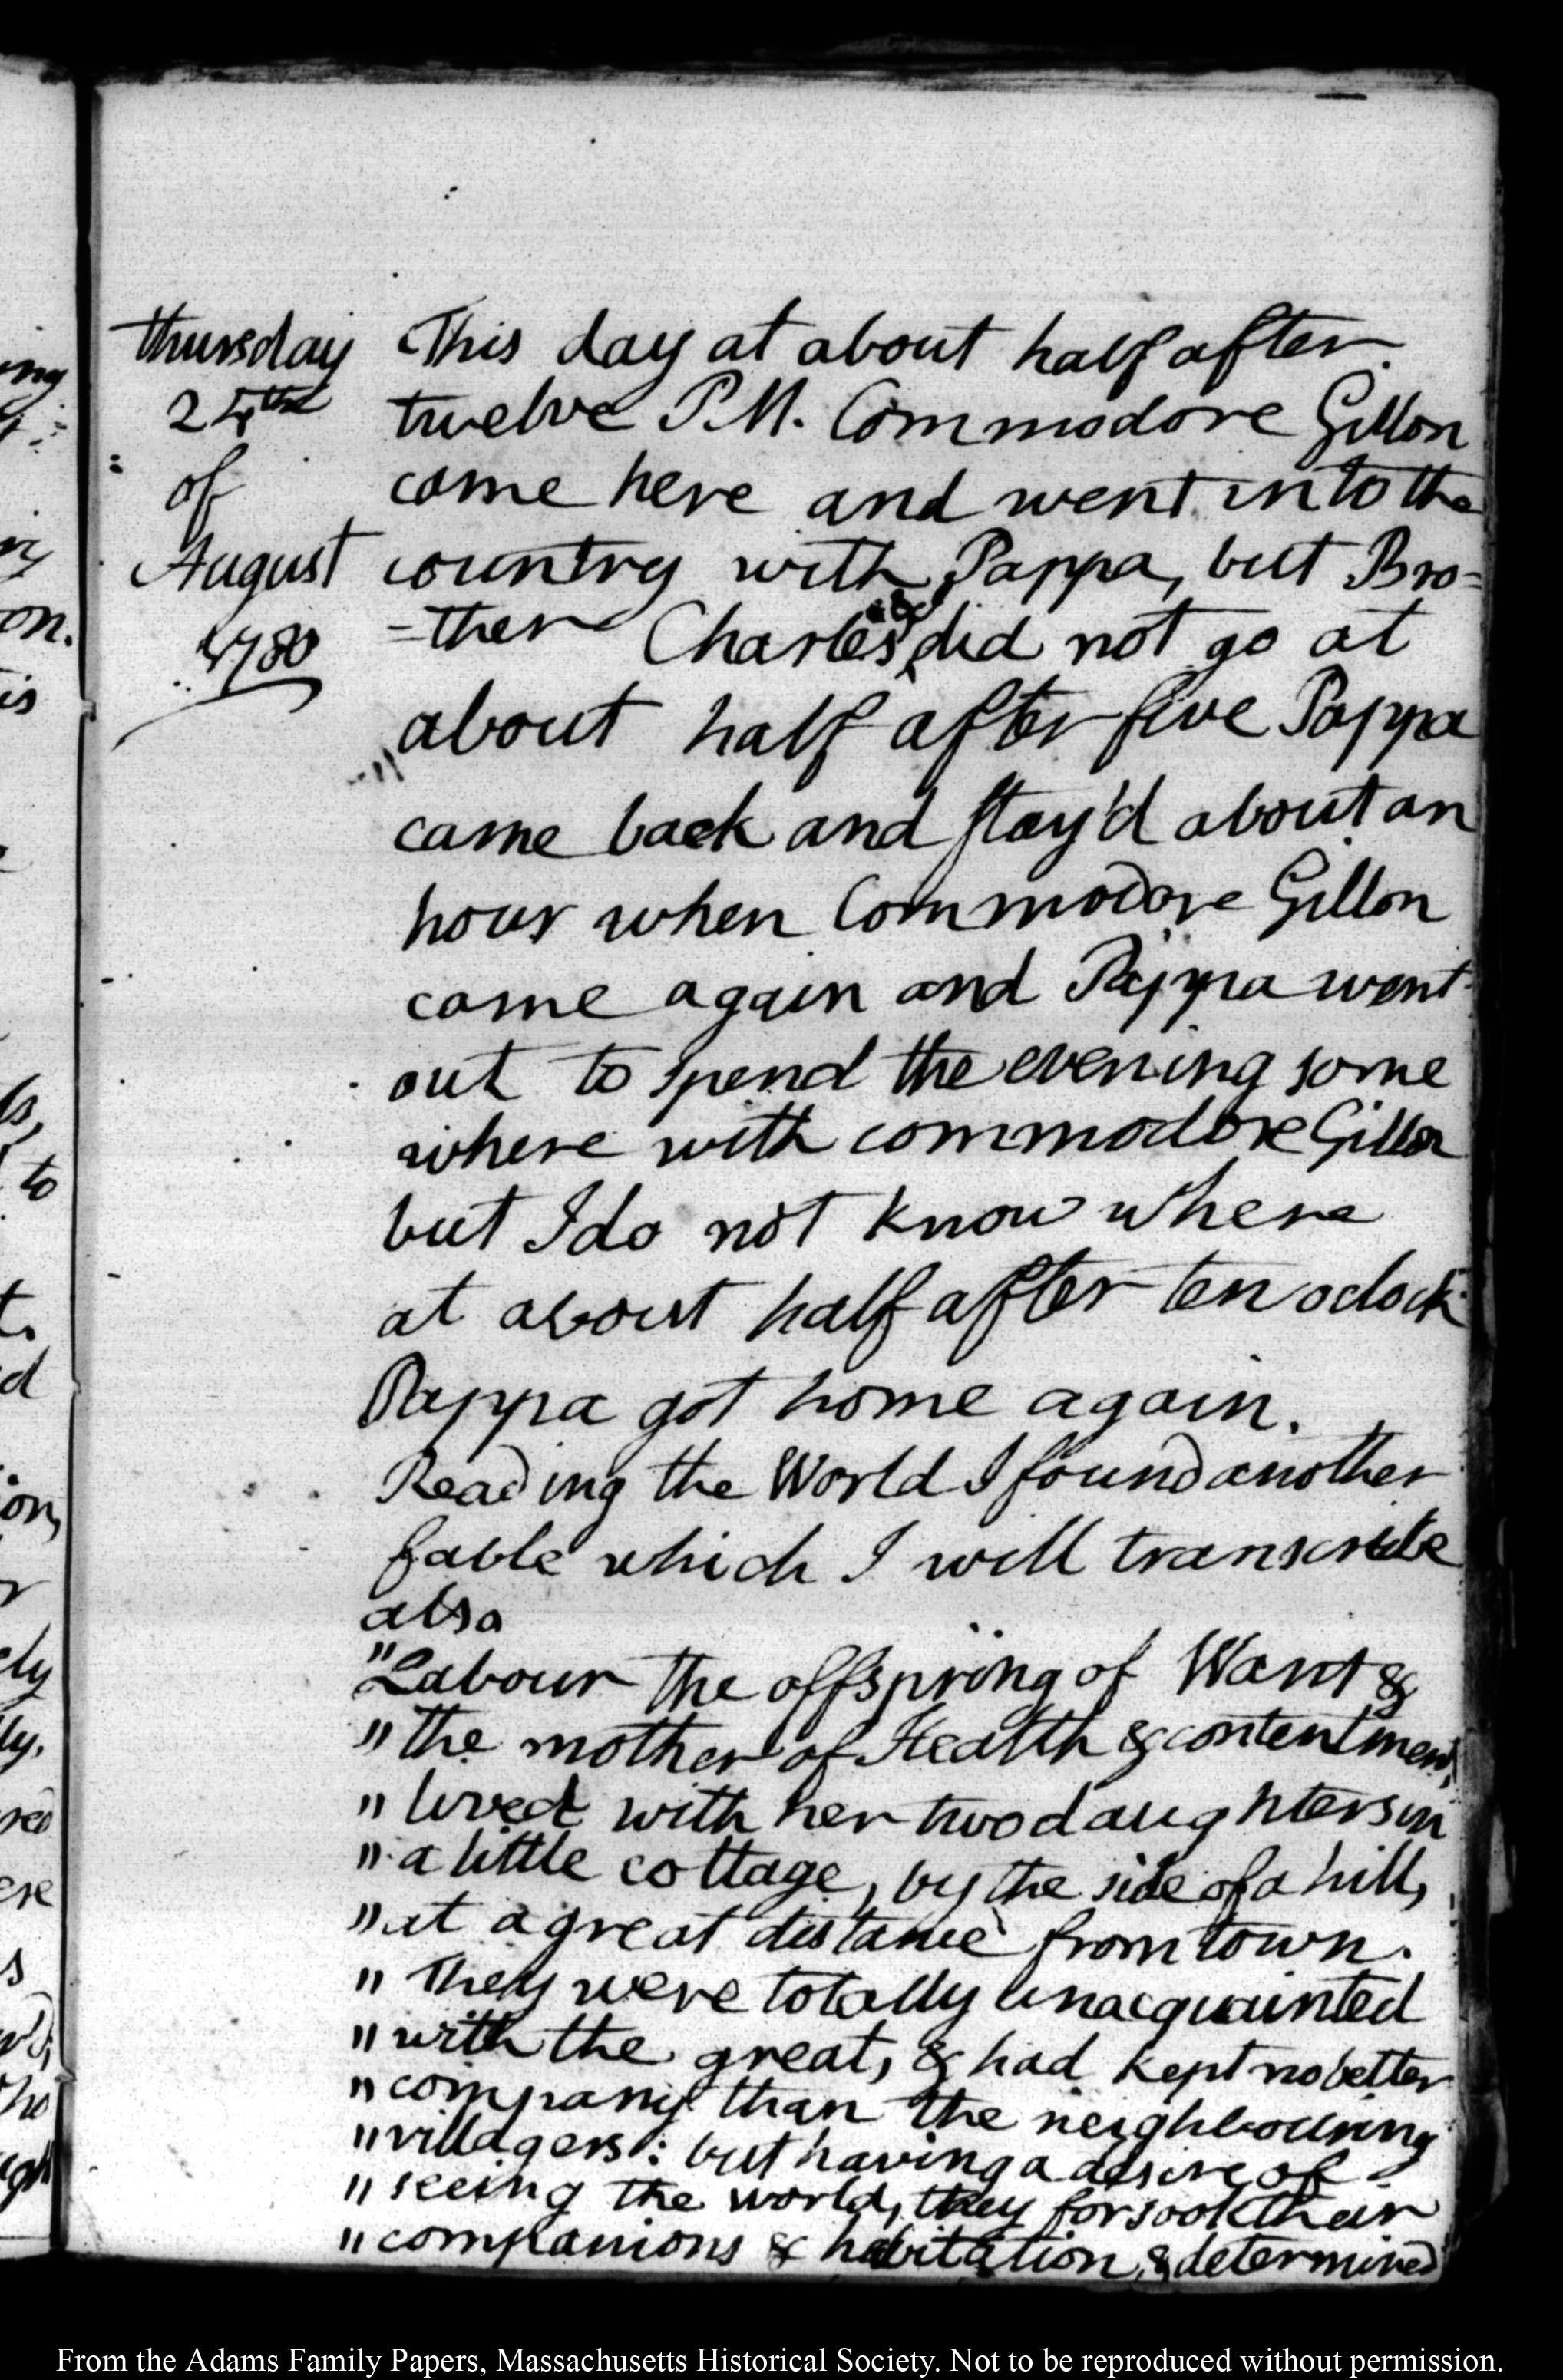 Thursday
24th
of
August
1780
This day at about half after
twelve P.M. Commodore Gillon
came here and went into the
country with Pappa, but Bro=
=ther Charles & I did not go at
about half after five Pappa
came back and stay'd about an
hour when Commodore Gillon
came again and Pappa went
out to spend the evening some
where with commodore Gillon
but I do not know where
at about half after ten oclock
Pappa got home again.
Reading the World I found another
fable which I will transcribe
also
"Labour the offspring of Want &
" the mother of Health & contentment,
" lived with her two daughters in
" a little cottage, by the side of a hill,
" at a great distance from town.
" They were totally unacquainted
" with the great, & had kept no better
" company than the neighbouring
" villagers: but having a desire of
" seeing the world, they forsook their
" companions & habitation & determined
From the Adams Family Papers, Massachusetts Historical Society. Not to be reproduced without permission.